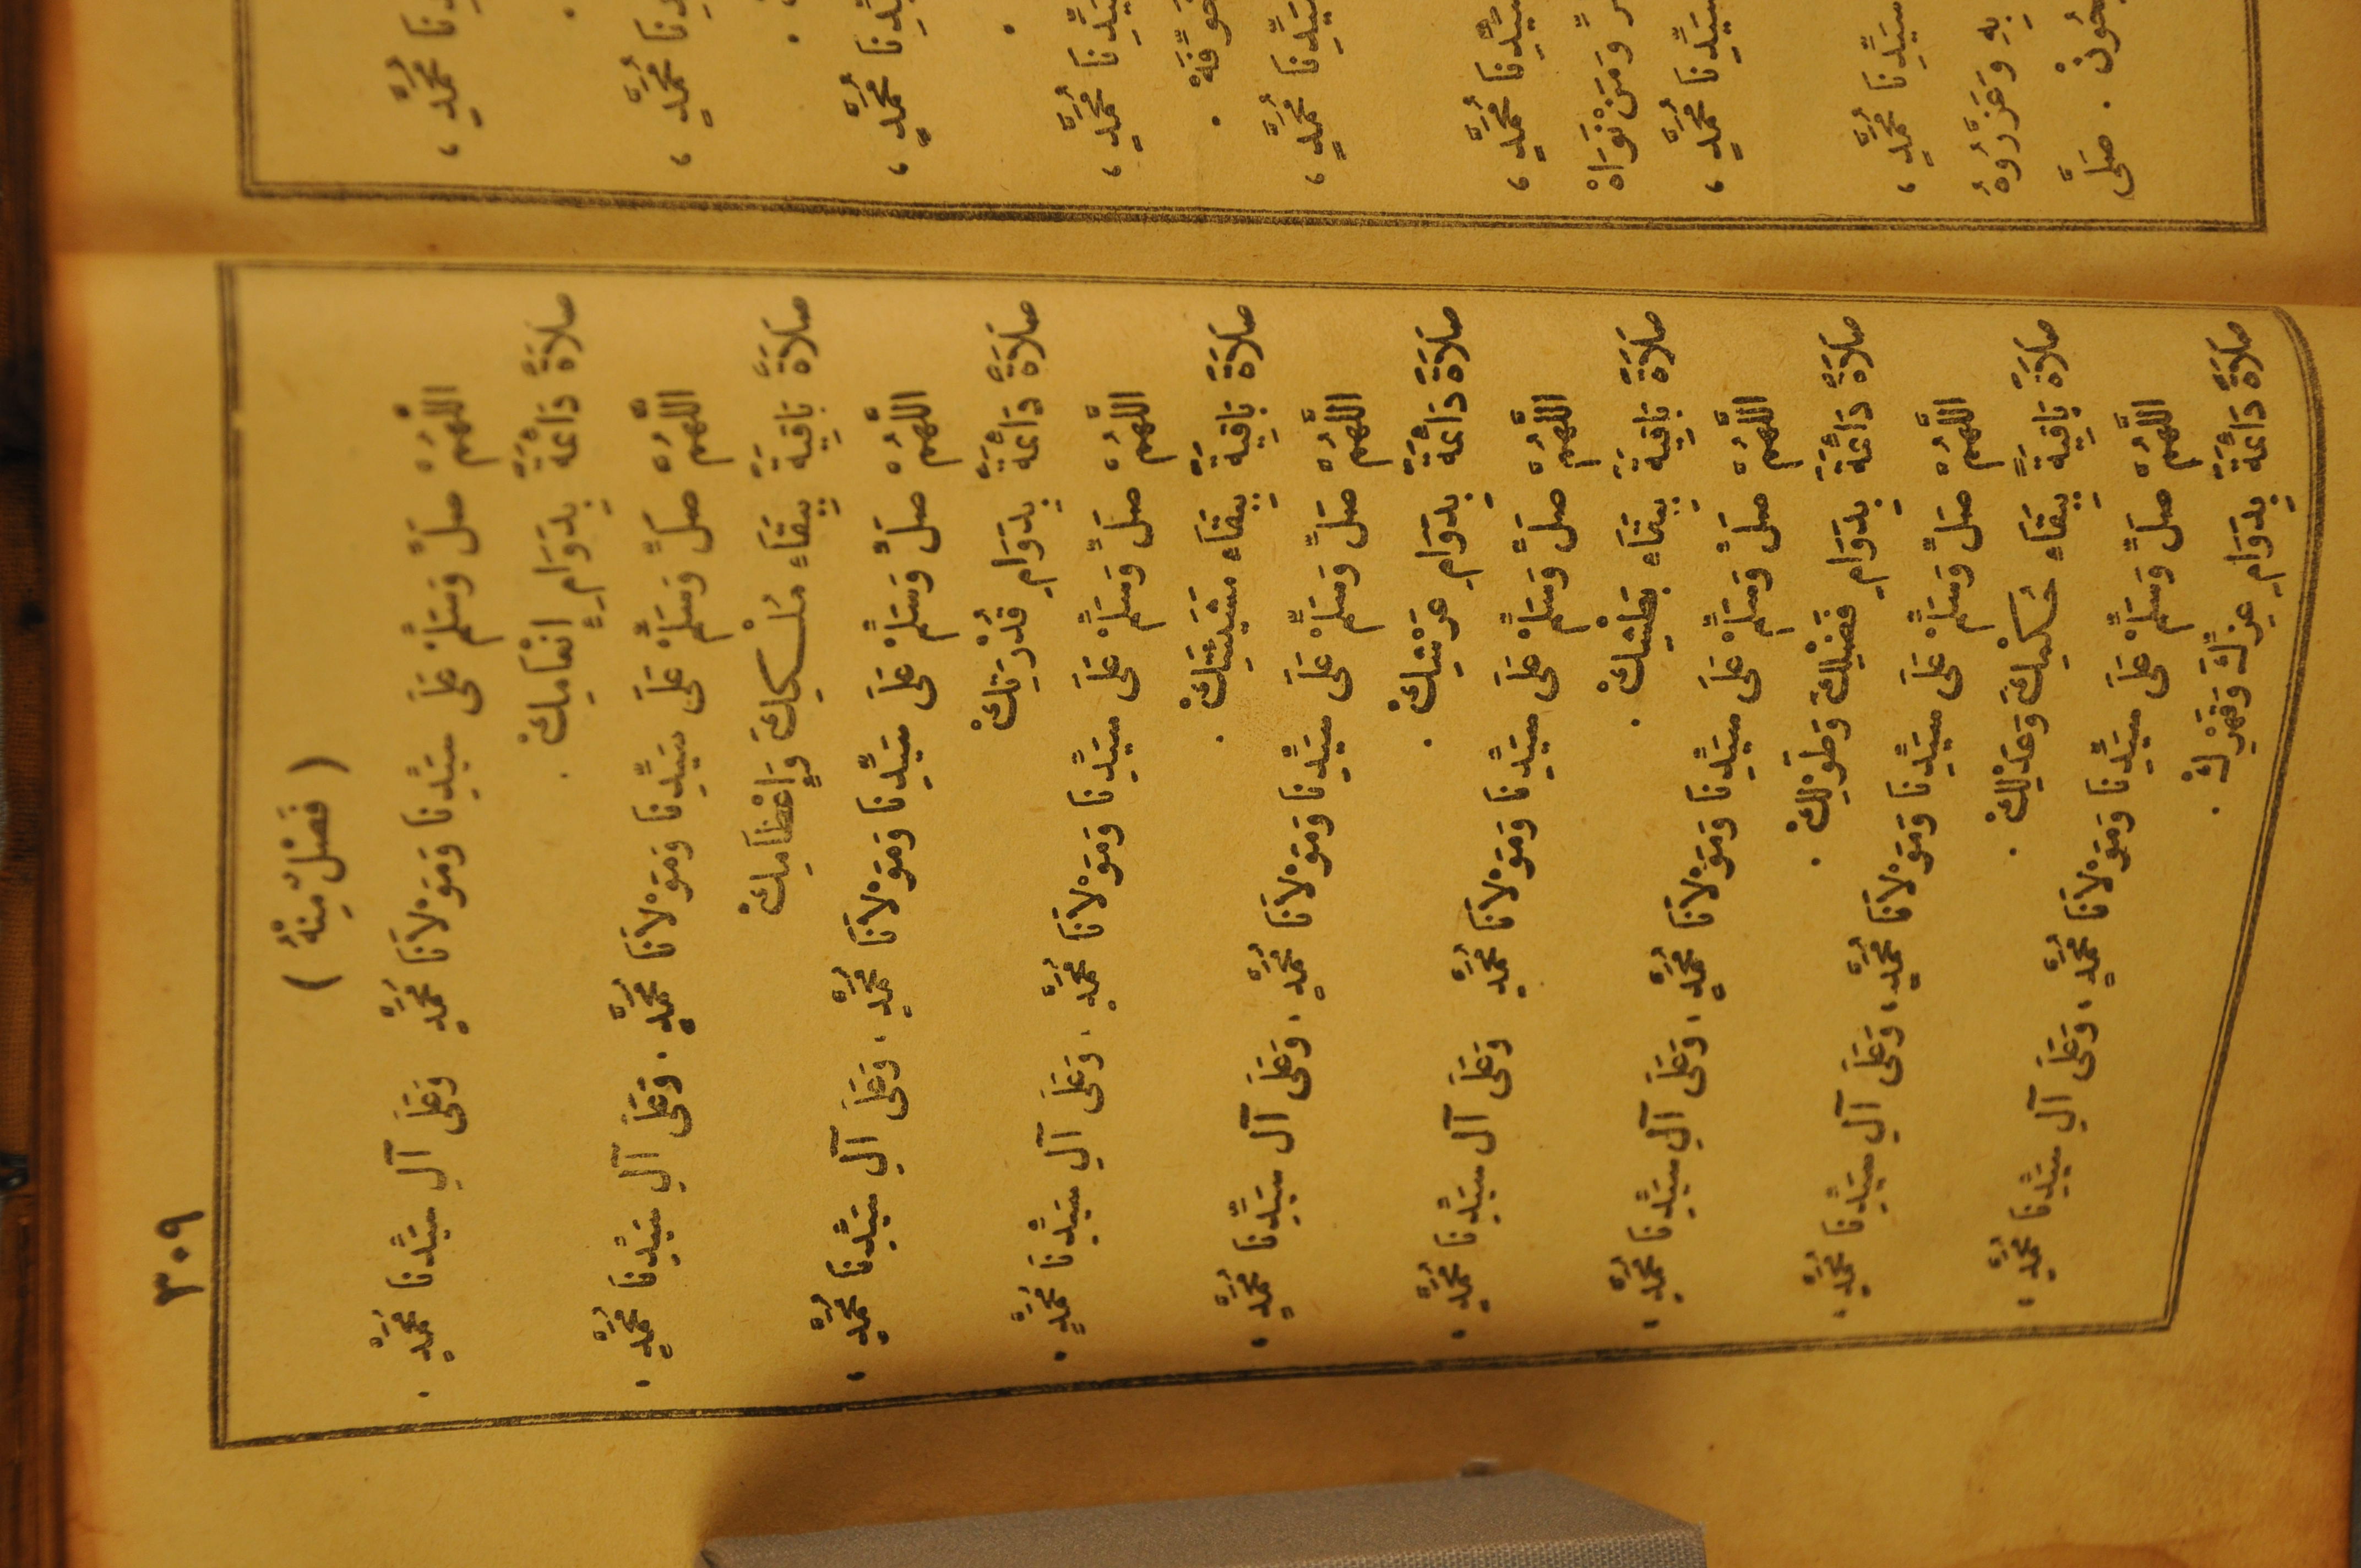 ٣٠٩
( فَصْلٌ مِنْهُ )
اللّٰهُمَّ صَلِّ وَسَلِّمْ عَلَى سَيِّدِنَا وَمَوْلَانَا مُحَمَّدٍ وَعَلَى آلِ سَيِّدِنَا مُحَمَّدٍ .
صَلَاةً دَائِمَةً بِدَوَامِ إِنْعَامِكْ .
اللّٰهُمَّ صَلِّ وَسَلِّمْ عَلَى سَيِّدِنَا وَمَوْلَانَا مُحَمَّدٍ . وَعَلَى آلِ سَيِّدِنَا مُحَمَّدٍ .
صَلَاةً بَاقِيَةً بِبَقَاءِ مُلْكِكَ وَإِعْظَامِكْ
اللّٰهُمَّ صَلِّ وَسَلِّمْ عَلَى سَيِّدِنَا وَمَوْلَانَا مُحَمَّدٍ . وَعَلَى آلِ سَيِّدِنَا مُحَمَّدٍ ،
صَلَاةً دَائِمَةً بِدَوَامِ قُدْرَتِكْ
اللّٰهُمَّ صَلِّ وَسَلِّمْ عَلَى سَيِّدِنَا وَمَوْلَانَا مُحَمَّدٍ . وَعَلَى آلِ سَيِّدِنَا مُحَمَّدٍ .
صَلَاةً بَاقِيَةً بِبَقَاءِ مَشِيئَتِكْ .
اللّٰهُمَّ صَلِّ وَسَلِّمْ عَلَى سَيِّدِنَا وَمَوْلَانَا مُحَمَّدٍ . وَعَلَى آلِ سَيِّدِنَا مُحَمَّدٍ ،
صَلَاةً دَائِمَةً بِدَوَامِ عِزَّتِكْ .
اللّٰهُمَّ صَلِّ وَسَلِّمْ عَلَى سَيِّدِنَا وَمَوْلَانَا مُحَمَّدٍ وَعَلَى آلِ سَيِّدِنَا مُحَمَّدٍ .
صَلَاةً بَاقِيَةً بِبَقَاءِ بَطْشِكْ .
اللّٰهُمَّ صَلِّ وَسَلِّمْ عَلَى سَيِّدِنَا وَمَوْلَانَا مُحَمَّدٍ . وَعَلَى آلِ سَيِّدِنَا مُحَمَّدٍ ،
صَلَاةً دَائِمَةً بِدَوَامِ فَضْلِكَ وَطَوْلِكْ .
اللّٰهُمَّ صَلِّ وَسَلِّمْ عَلَى سَيِّدِنَا وَمَوْلَانَا مُحَمَّدٍ ، وَعَلَى آلِ سَيِّدِنَا مُحَمَّدٍ ،
صَلَاةً بَاقِيَةً بِبَقَاءِ حُكْمِكَ وَعَدْلِكْ .
اللّٰهُمَّ صَلِّ وَسَلِّمْ عَلَى سَيِّدِنَا وَمَوْلَانَا مُحَمَّدٍ ، وَعَلَى آلِ سَيِّدِنَا مُحَمَّدٍ ،
صَلَاةً دَائِمَةً بِدَوَامِ عِزِّكَ وَقَهْرِكْ .
مُحَمَّدٍ ،
مُحَمَّدٍ ،
مُحَمَّدٍ ،
سَيِّدِنَا مُحَمَّدٍ ،
سَيِّدِنَا مُحَمَّدٍ ،
سَيِّدِنَا مُحَمَّدٍ ،
سَيِّدِنَا مُحَمَّدٍ ،
سَيِّدِنَا مُحَمَّدٍ ،
بِهِ وَعَزَّرُوهُ
. صَلَّى